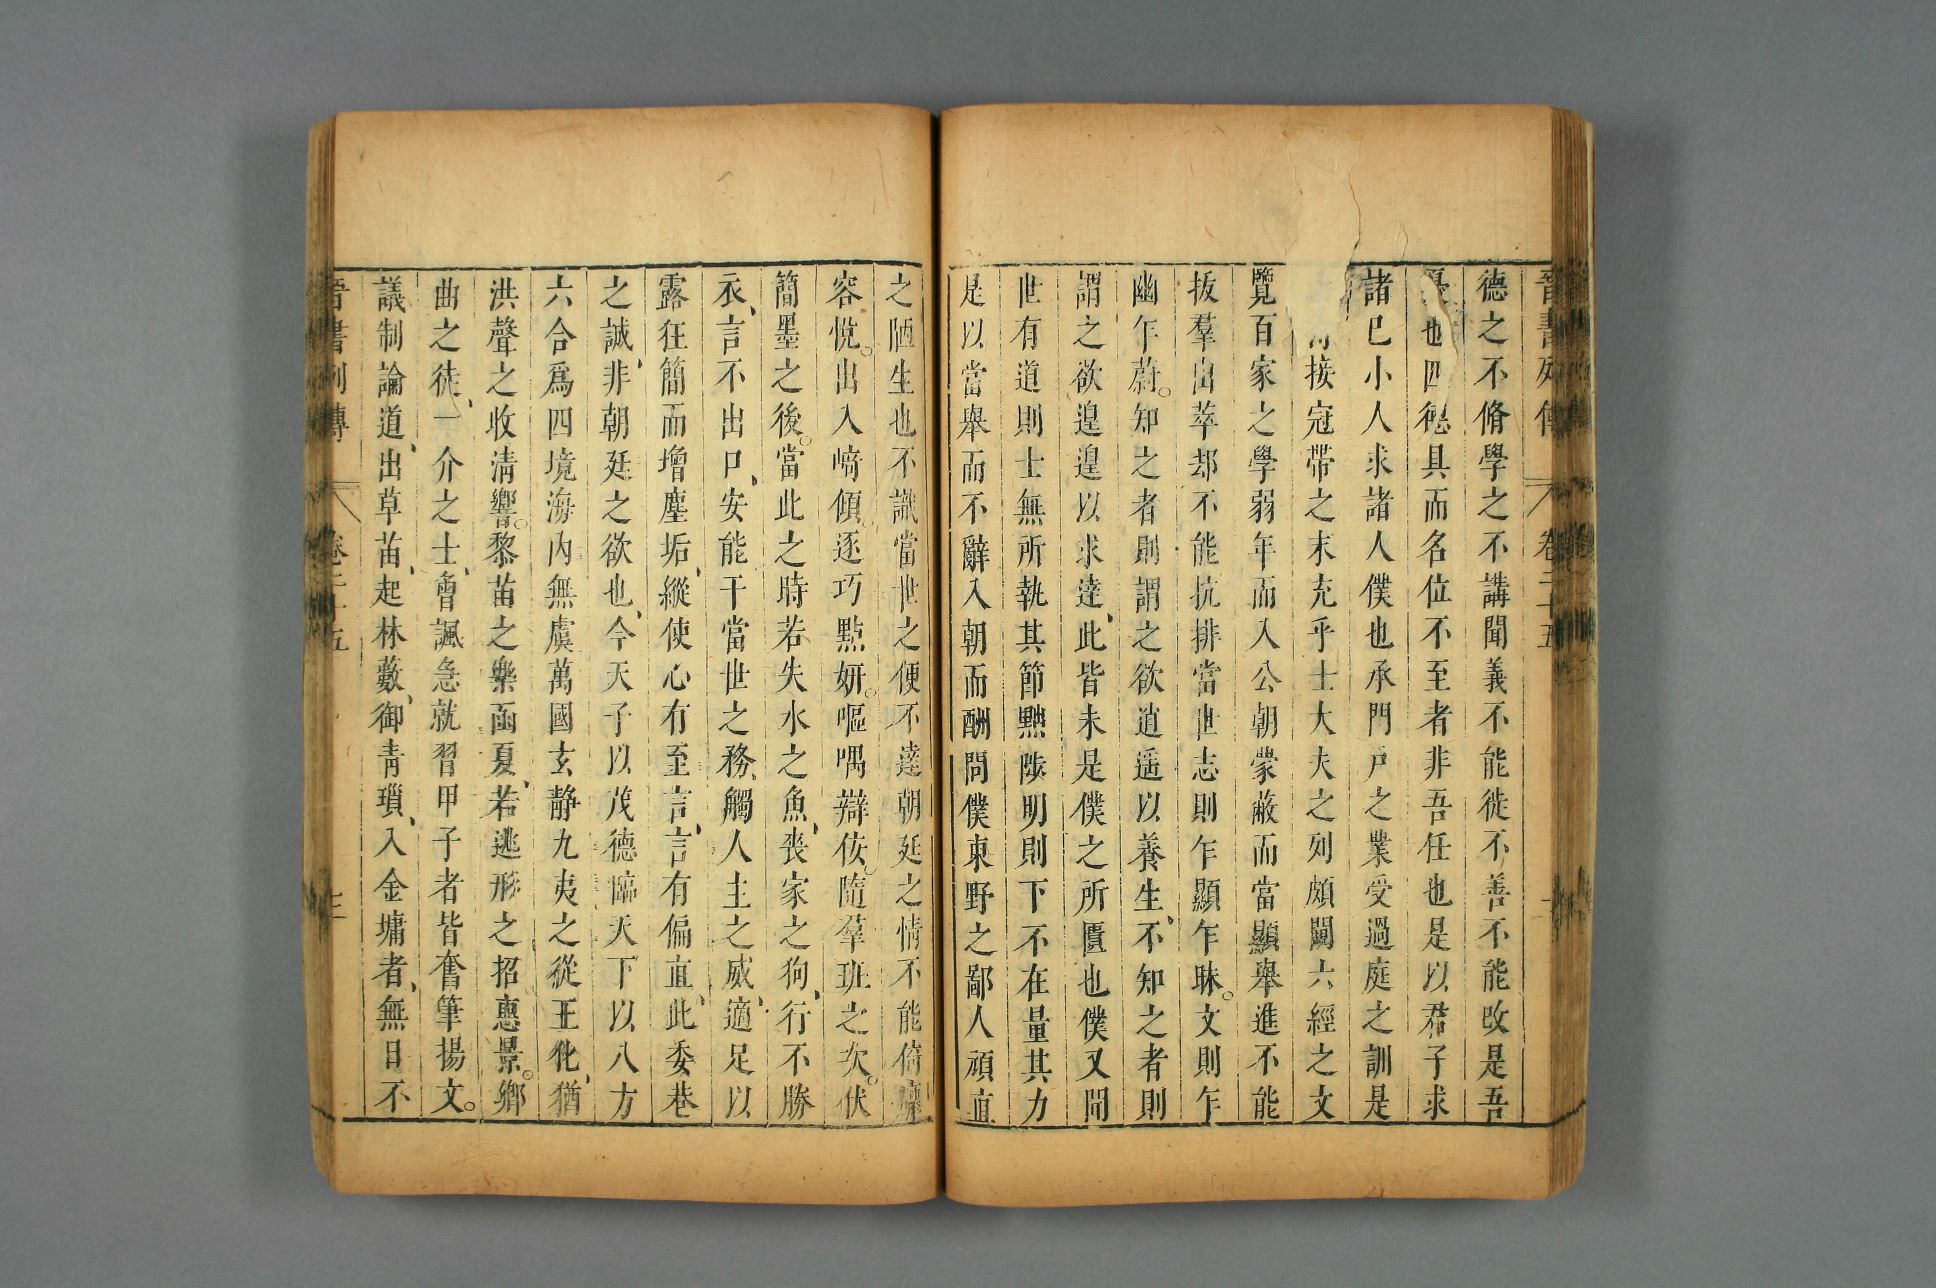 晉書列傳 卷二十五
德之不脩學之不講聞義不能徙不善不能改是吾
憂也四德具而名位不至者非吾任也是以君子求
諸已小人求諸人僕也承門戸之業受過庭之訓是
接冠帶之末充乎士大夫之列頗闚六經之文
覽百家之學弱年而入公朝蒙蔽而當顯舉進不能
拔羣出萃却不能抗排當世志則乍顯乍昧。文則乍
幽乍蔚。知之者則謂之欲逍遥以養生、不知之者則
謂之欲遑遑以求達、此皆未是僕之所匱也僕又聞
世有道則士無所執其節黜陟明則下不在量其力
是以當舉而不辭入朝而酬問僕東野之鄙人頑直
之陋生也不識當世之便不達朝廷之情不能倚靡
容悅。出入崎傾。逐巧點妍。嘔喁辯佞。隨羣班之次。伏
簡墨之後。當此之時若失水之魚、喪家之狗、行不勝
衣、言不出口、安能干當世之務、觸人主之威、適足以
露狂簡而增塵垢、縱使心有至言、言有偏直、此委巷
之誠、非朝廷之欲也、今天子以茂德臨天下以八方
六合爲四境海內無虞萬國玄靜九夷之從王化、猶
洪聲之收淸響。黎苗之樂函夏、若逃形之招惠景。鄉
曲之徒、一介之士、會諷急就習甲子者皆奮筆揚文。
議制論道、出草苗、起林藪、御靑瑣、入金墉者、無日不
晉書列傳 卷二十五 十二